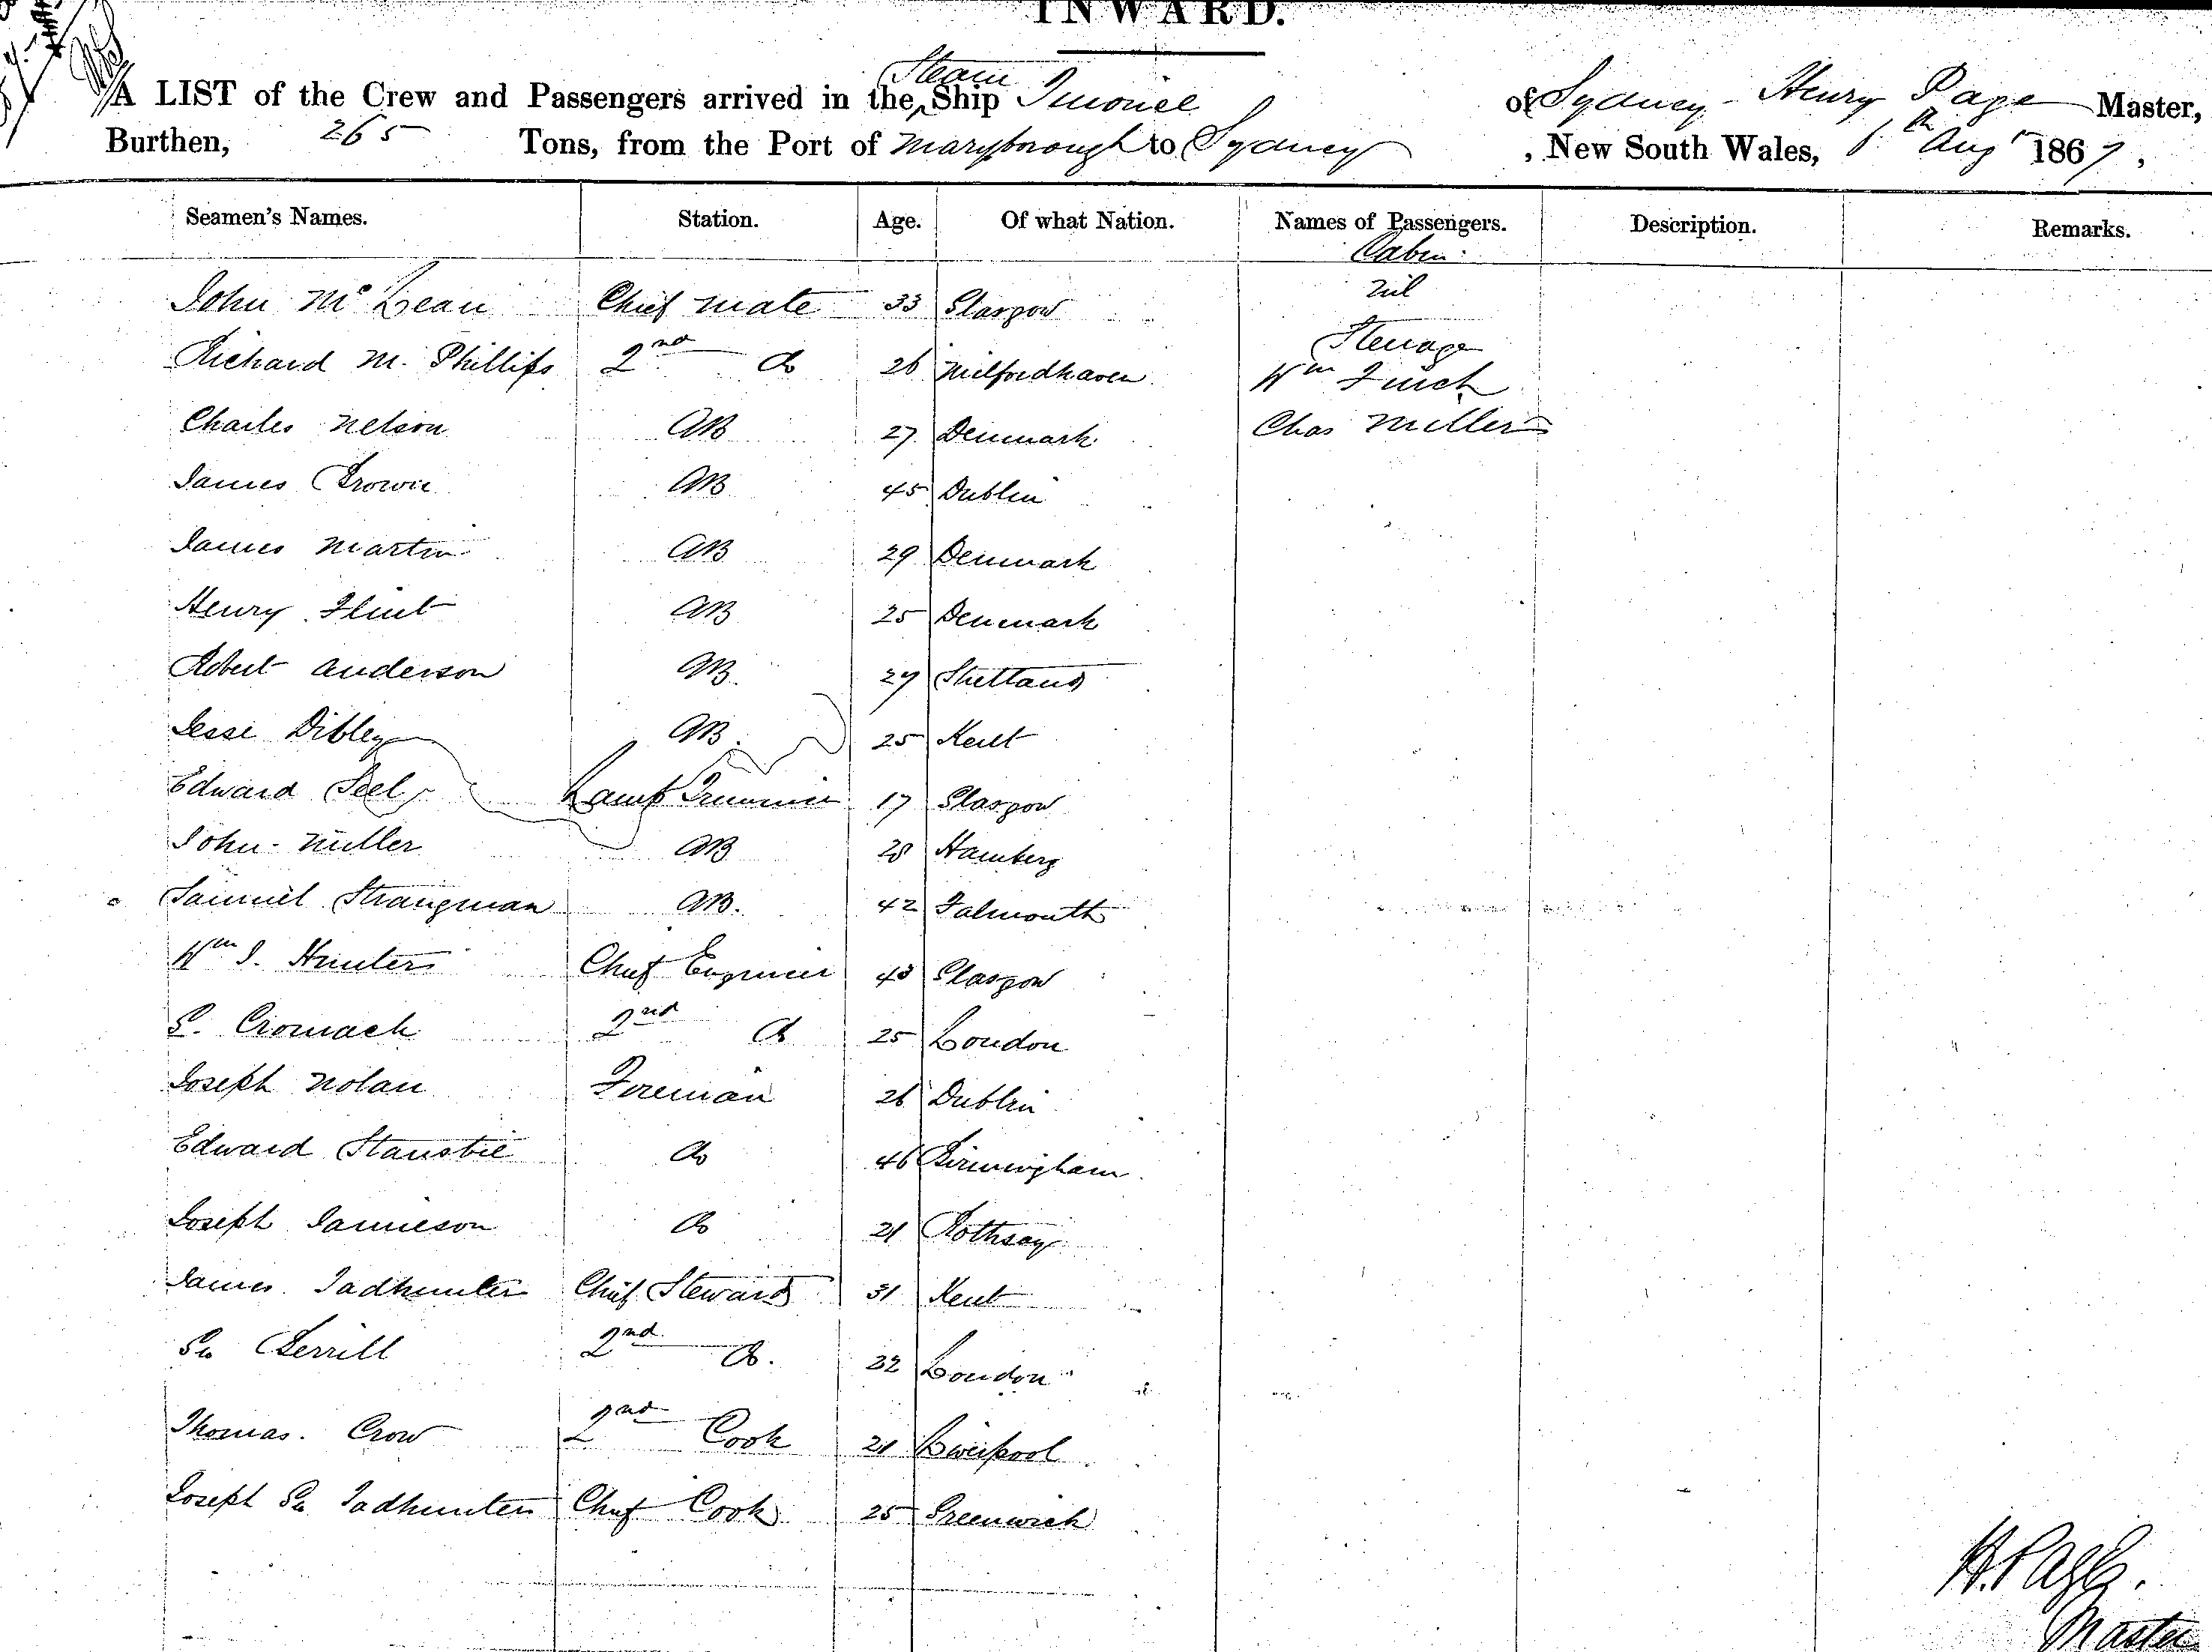 INWARD.
A LIST of the Crew and Passengers arrived in the Steam Ship of Sydney - Henry Page Master,
Burthen, 265 Tons, from the Port of Maryborough to Sydney , New South Wales, Aug 1867,
Seamen's Names. Station. Age. Of what Nation. Names of Passengers. Description. Remarks.
Cabin
John Mc Lean Chief mate 33 Glasgow nil
Steerage
Richard M. Phillips 2nd do 26 Milfordhaven Wm Finch
Charles Nelson AB 27 Denmark Chas Miller
James Brown AB 45 Dublin
James Martin AB 29 Denmark
Henry Flint AB 25 Denmark
Robert Anderson AB. 27 Shetland
Jesse Dibley AB. 25 Kent
Edward Lamp Trimmer 17 Glasgow
John Miller AB 28 Hamberg
Samuel Strangman AB. 42 Falmouth
Wm J. Hunter Chief Engineer 43 Glasgow
G. Cromack 2nd do 25 London
Joseph Nolan Fireman 26 Dublin
Edward do 46 Birmingham
Joseph Jamieson do 21 Rothsay
James Tadhunter Chief Steward 31 Kent
Geo Berrill 2nd do. 22 London
Thomas. Crow 2nd Cook 21 Liverpool
Joseph Geo Tadhunter Chief Cook 25 Greenwich
H. Page.
Master